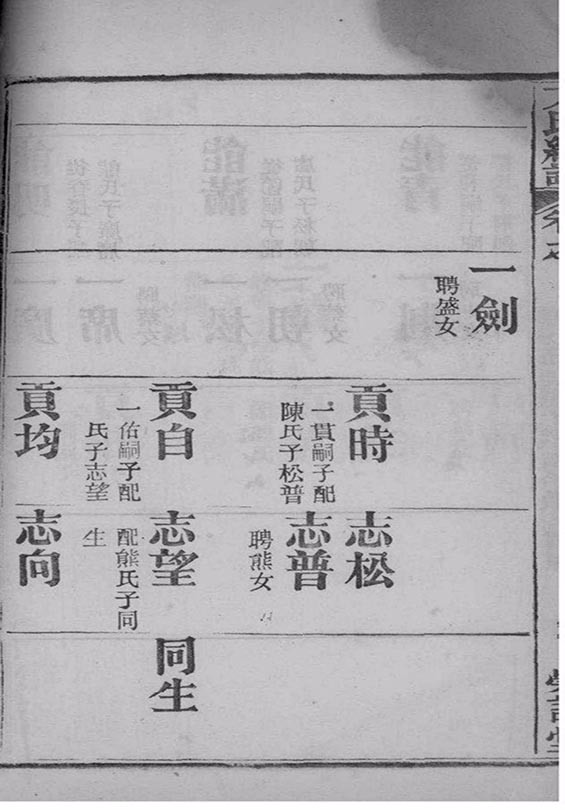 一劍
聘盛女
貢時
一貫嗣子配
陳氏子松普
貢自
一佑嗣子配
氏子志望
貢均
志松
志普
聘熊女
志望
配熊氏子同
生
志向
同生